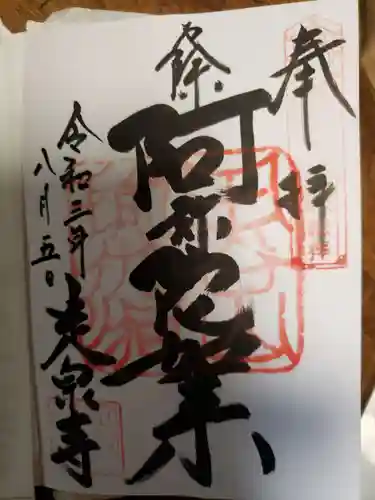 奉拝
阿弥陀如来
令和三年
八月五日
泉寺